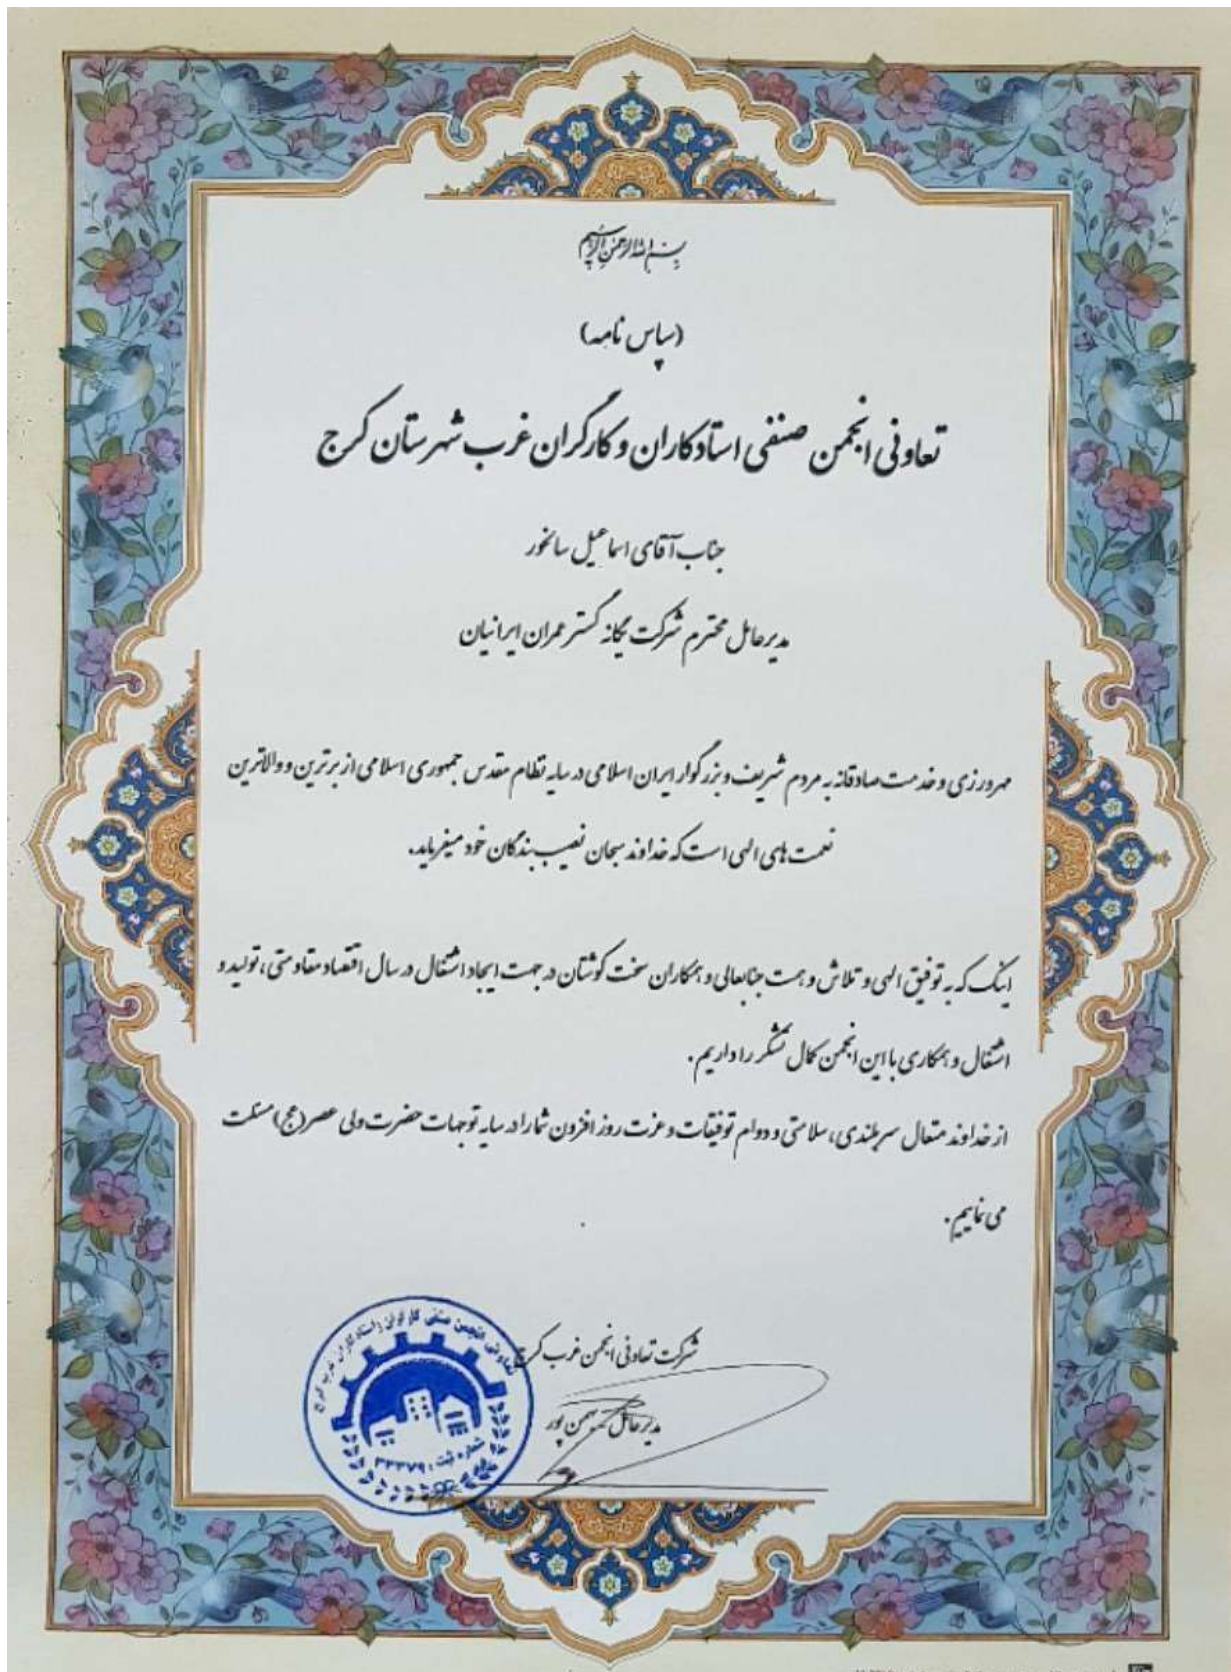 بسم الله الرحمن الرحیم
(سپاس نامه)
تعاونی انجمن صنفی استادکاران و کارگران غرب شهرستان کرج
جناب آقای اسماعیل سانخور
مدیرعامل محترم شرکت یگانه گستر عمران ایرانیان
مهرورزی و خدمت صادقانه به مردم شریف و بزرگوار ایران اسلامی در سایه نظام مقدس جمهوری اسلامی از برترین و والاترین
نعمت های الهی است که خداوند سبحان نصیب بندگان خود میفرماید.
اینک که به توفیق الهی و تلاش و همت جنابعالی و همکاران سخت کوشتان در جهت ایجاد اشتغال در سال اقتصاد مقاومتی، تولید و
اشتغال و همکاری با این انجمن کمال تشکر را داریم.
از خداوند متعال سربلندی، سلامتی و دوام توفیقات و عزت روز افزون شما را در سایه توجهات حضرت ولی عصر (عج) مسئلت
می نماییم.
شرکت تعاونی انجمن غرب کرج
مدیرعامل بهمن پور
تعاونی انجمن صنفی کارگران و استادکاران غرب کرج
شماره ثبت : ۳۳۳۷۹